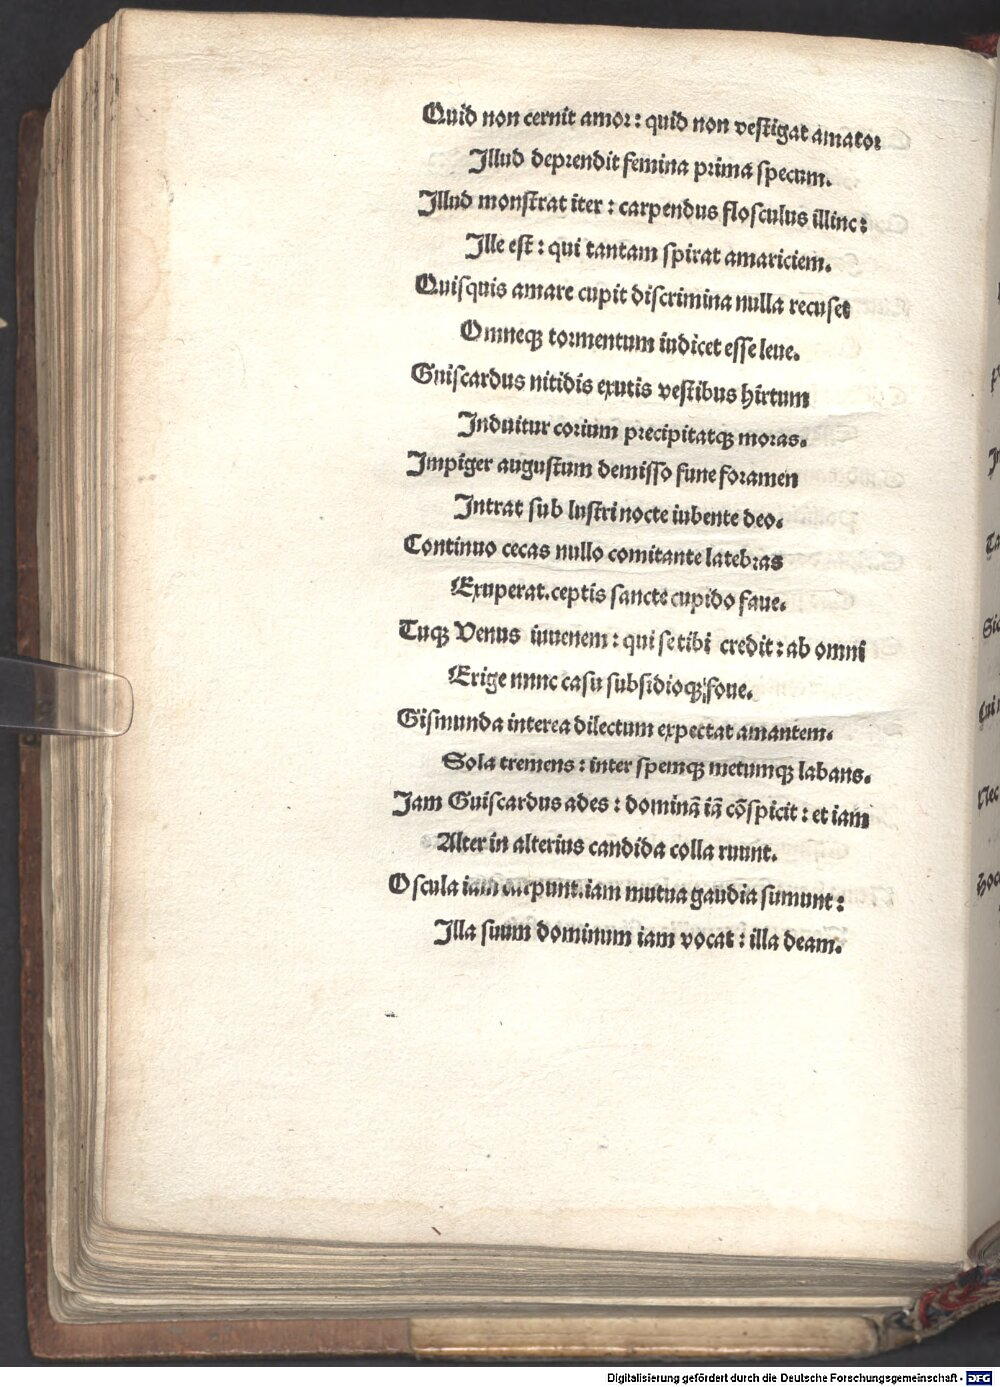 Quid non cernit amor: quid non vestigat amator
Illud deprendit femina prima specum.
Illud monstrat iter: carpendus flosculus illinc:
Ille est: qui tantam spirat amariciem.
Quisquis amare cupit discrimina nulla recuset
Omneqꝫ tormentum iudicet esse leue.
Guiscardus nitidis exutis vestibus hirtum
Induitur corium precipitatqꝫ moras.
Impiger augustum demisso fune foramen
Intrat sub lustri nocte iubente deo.
Continuo cecas nullo comitante latebras
Exuperat. ceptis sancte cupido faue.
Tuqꝫ Venus iuuenem: qui se tibi credit: ab omni
Erige nunc casu subsidioqꝫ foue.
Gismunda interea dilectum expectat amantem.
Sola tremens: inter spemqꝫ metumqꝫ labans.
Iam Guiscardus ades: dominā iā cōspicit: et iam
Alter in alterius candida colla ruunt.
Oscula iam carpunt. iam mutua gaudia sumunt:
Illa suum dominum iam vocat: illa deam.
Digitalisierung gefördert durch die Deutsche Forschungsgemeinschaft - DFG